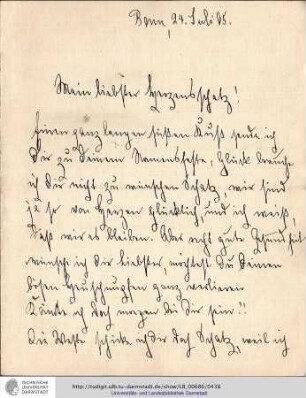 Bonn 24. Juli 08.
Mein liebster Herzensschatz!
Einen ganz langen süßen Kuß sende ich
Dir zu Deinem Namensfeste, Glück brauche
ich Dir nicht zu wünschen Schatz, wir sind
ja so von Herzen glücklich, und ich weiß,
daß wir es bleiben. Aber recht gute Gesundheit
wünsche ich Dir Liebster, möchtest Du Deinen
bösen Heuschnupfen ganz verlieren
Könnte ich doch morgen bei Dir sein!!
Die Weste schicke ich Dir doch Schatz, weil ich
TECHNISCHE
UNIVERSITÄT
DARMSTADT
http://tudigit.ulb.tu-darmstadt.de/show/LB_00686/0438
Universitäts- und Landesbibliothek Darmstadt